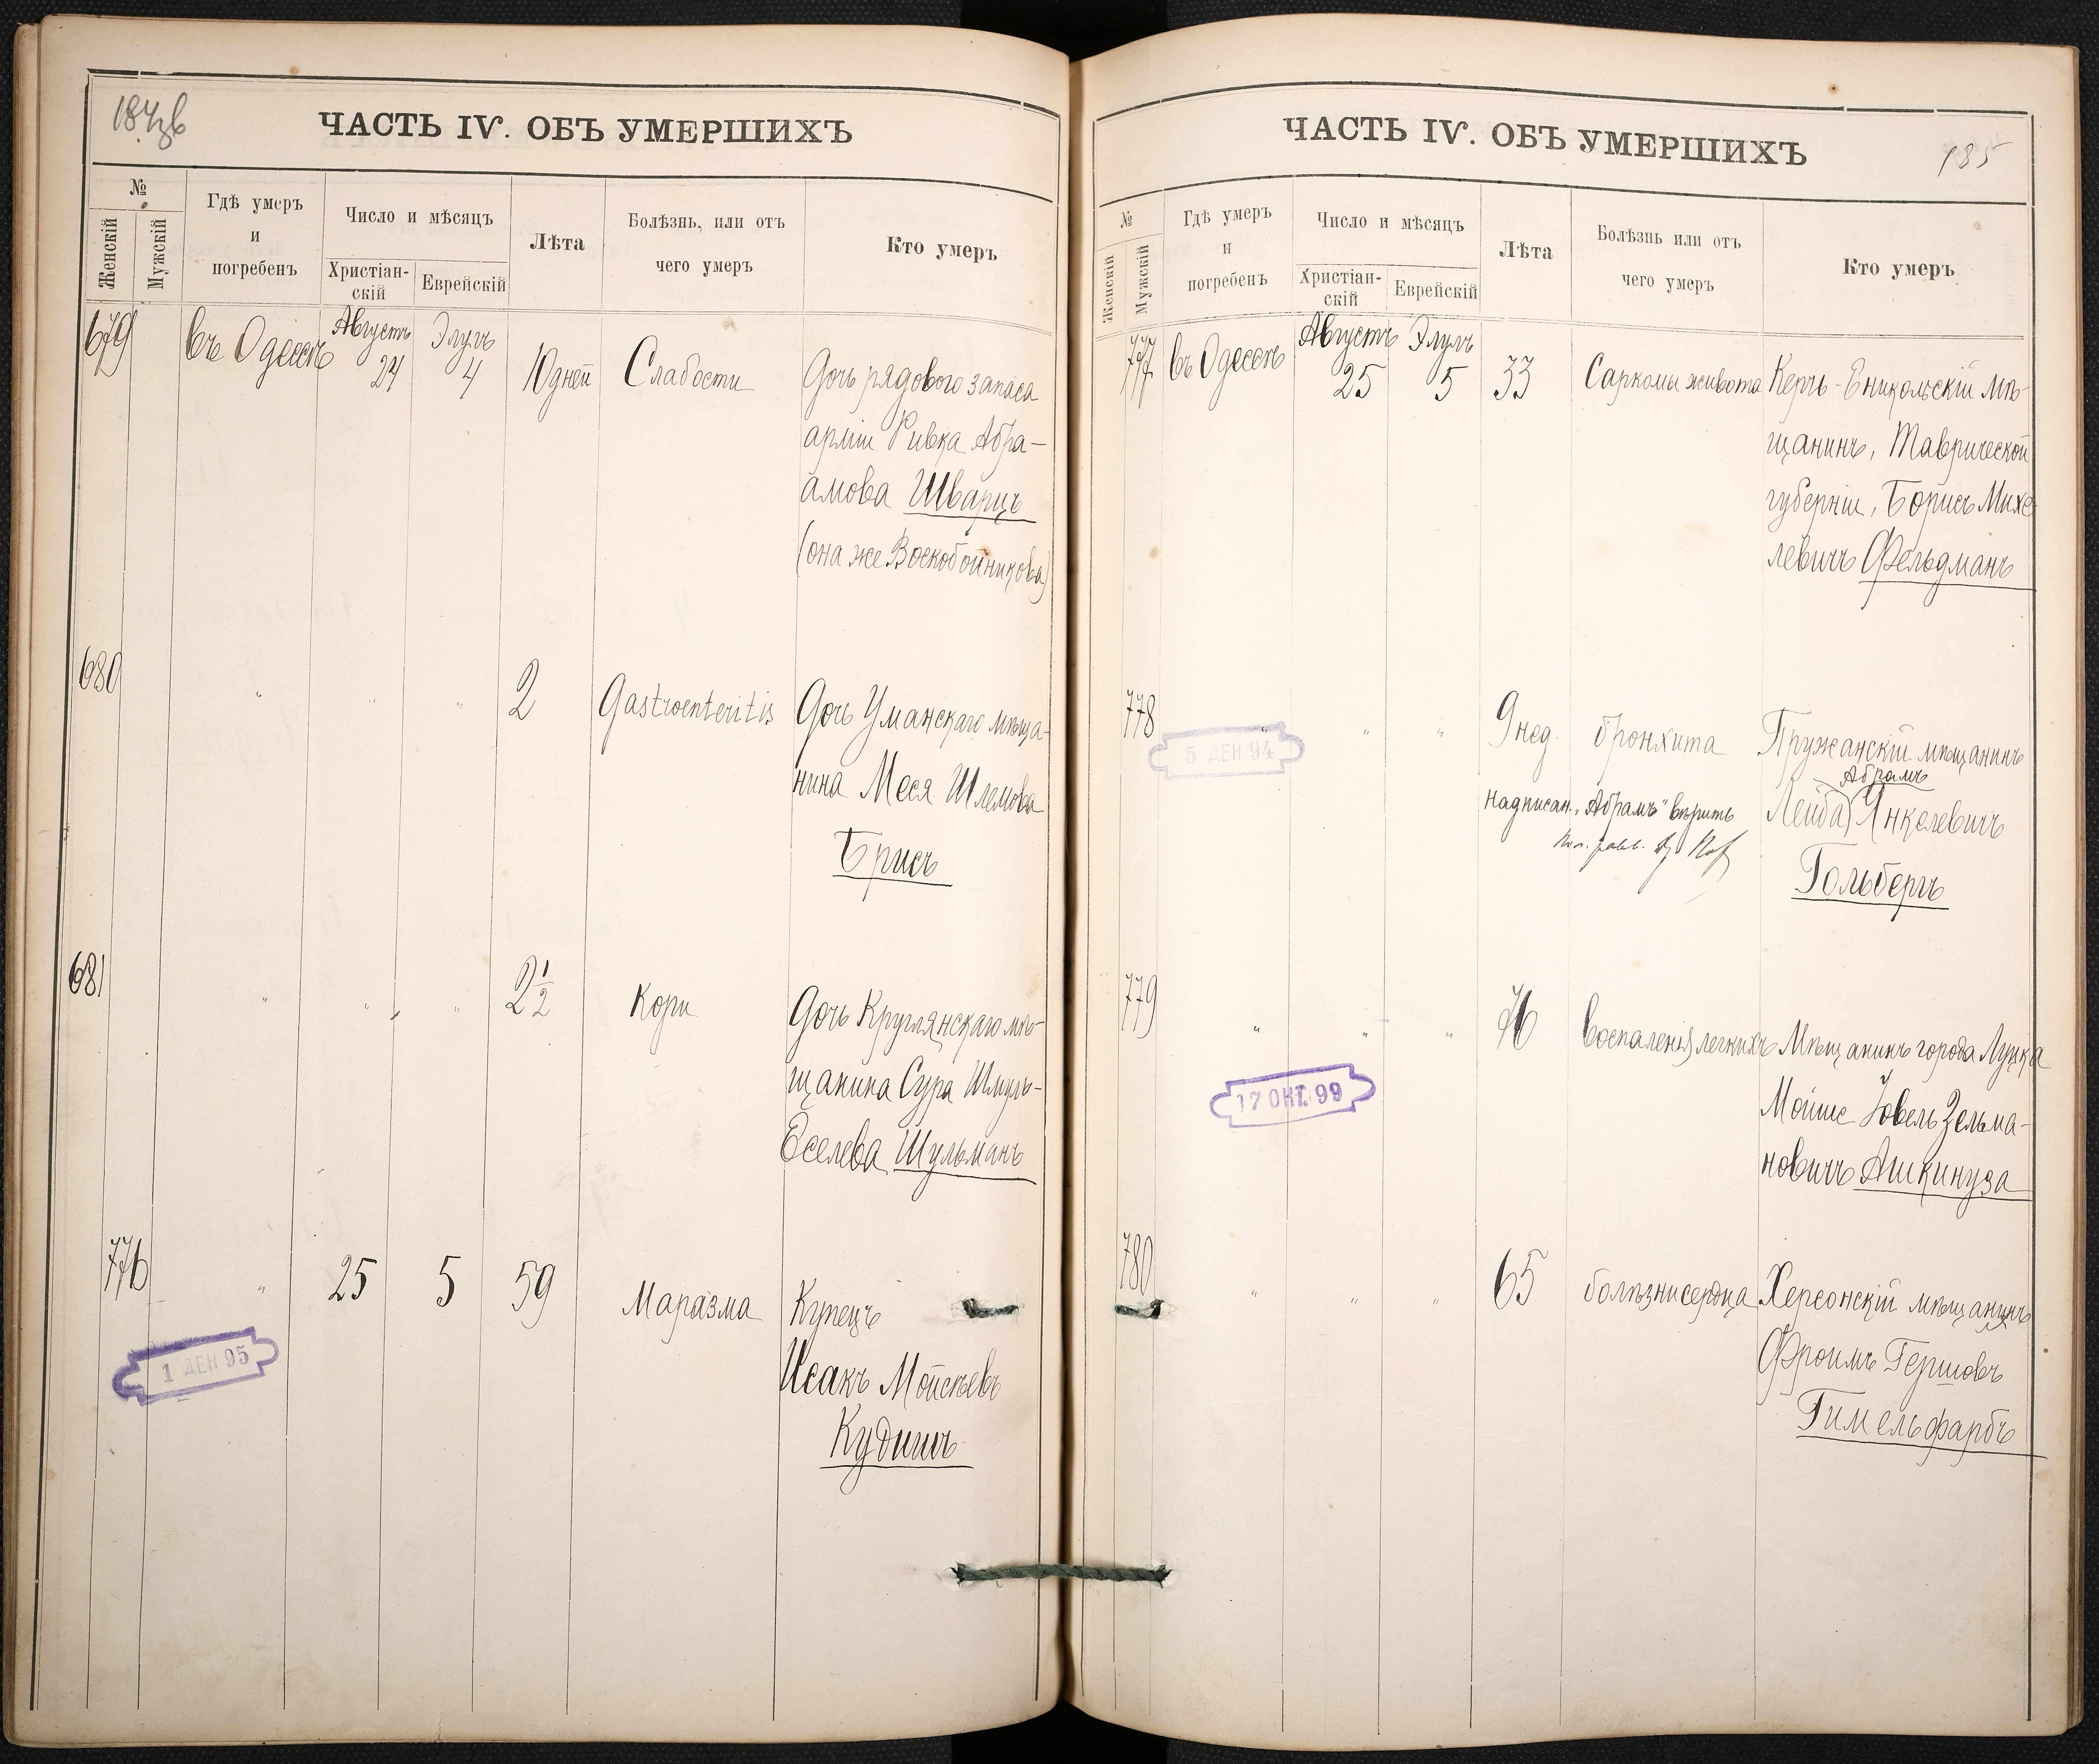 184 об
ЧАСТЬ IV. ОБЪ УМЕРШИХЪ
№
Женскій
Мужскій
Гдѣ умеръ
и
погребенъ
Число и мѣсяцъ
Христіан-
скій
Еврейскій
Лѣта
Болѣзнь, или отъ
чего умеръ
Кто умеръ
679 въ Одессѣ Августъ 24 Элулъ 4 10 дней Слабости Дочь рядового запаса
арміи Ривка Абра-
амова Шварцъ
(она же Воскобойникова)
680 " " " 2 Gastroenteritis Дочь Уманскаго мѣща-
нина Меся Шлемова
Брисъ
681 " " " 2 1/2 Кори Дочь Круглянскаго мѣ-
щанина Сура Шмуль-
Еселева Шульманъ
776 " 25 5 59 Маразма Купецъ
Исакъ Мойсѣевъ
Кудишъ
1 ДЕК 95
ЧАСТЬ IV. ОБЪ УМЕРШИХЪ
185
№
Женскій
Мужскій
Гдѣ умеръ
и
погребенъ
Число и мѣсяцъ
Христіан-
скій
Еврейскій
Лѣта
Болѣзнь или отъ
чего умеръ
Кто умеръ
777 въ Одессѣ Августъ 25 Элулъ 5 33 Саркомы живота Керчь-Еникольскій мѣ-
щанинъ, Таврической
губерніи, Борисъ Михе
левичъ Фельдманъ
778 " " " 9 нед. бронхита Пружанскій мѣщанинъ
Абрамъ
Лейба Янкелевичъ
Гольбергъ
надписан. "Абрамъ" вѣрить
5 ДЕК 94
779 " " " 76 воспаленія легкихъ Мѣщанинъ города Луцка
Мойше Іовель Зельма-
новичъ Ашкинуза
17 ОКТ. 99
780 " " " 65 болѣзни сердца Херсонскій мѣщанинъ
Фроимъ Гершовъ
Гимельфарбъ